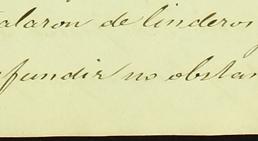 alaron de linderos
fundir no obstan